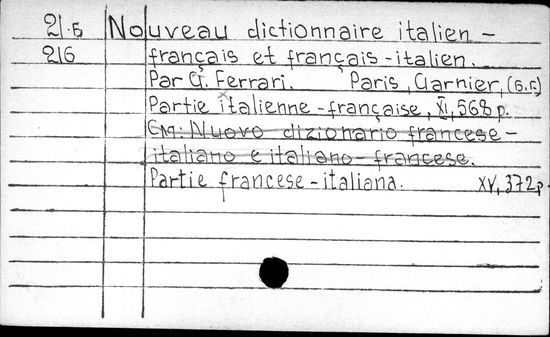 21.5 Nouveau dictionnaire italien -
216 français et français-italien.
Par G. Ferrari. Paris, Garnier, (б.г.)
Partie italienne-française, XI, 568 p.
См: Nuovo dizionario francese-
italiano e italiano-francese.
Partie francese-italiana. XV, 372 p.